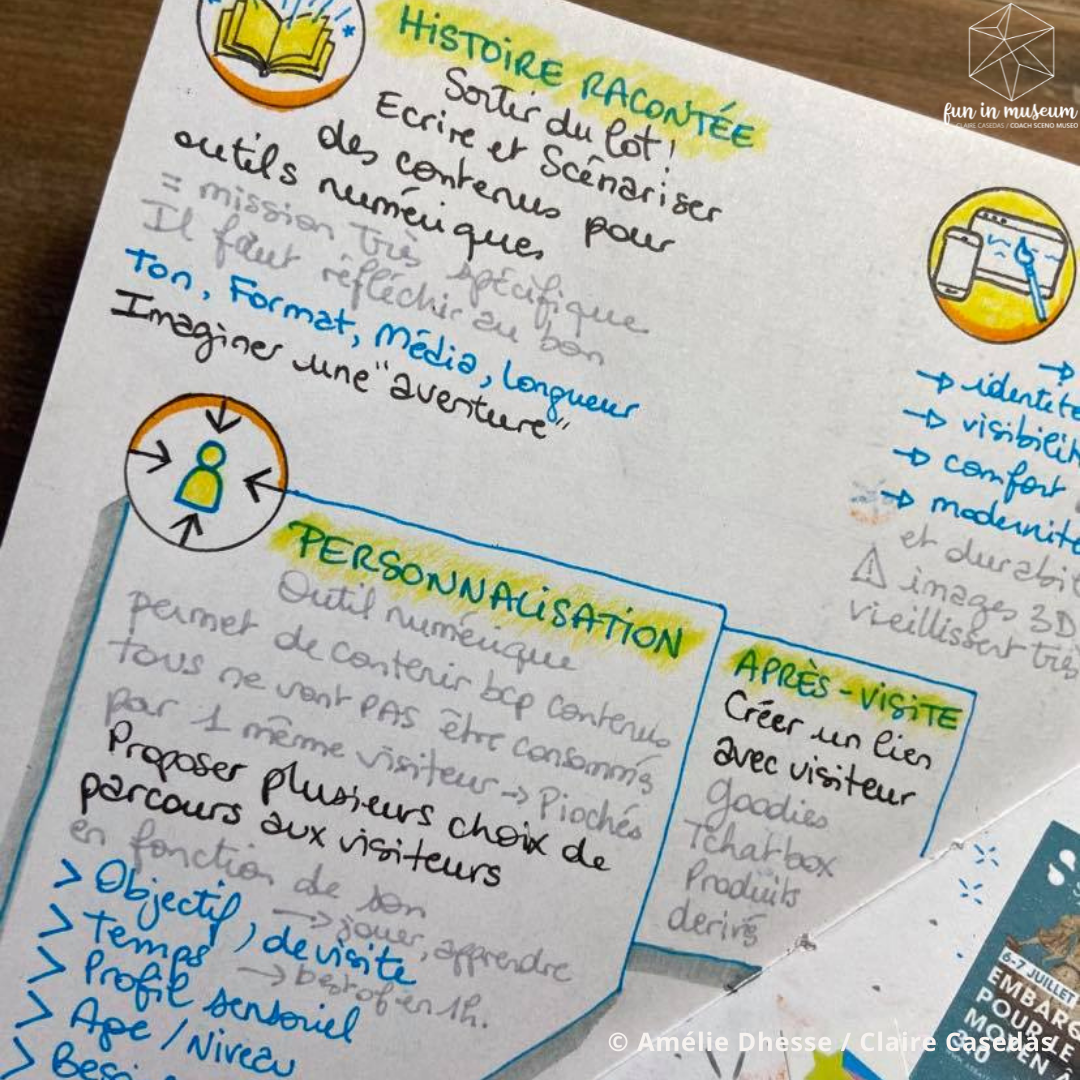 HISTOIRE RACONTÉE
Sortir du lot !
Ecrire et Scénariser
des contenus pour
outils numériques
= mission très spécifique
Il faut réfléchir au bon
Ton, Format, Média, Longueur
Imaginer une "aventure"
PERSONNALISATION
Outil numérique
permet de contenir bcp contenus
tous ne vont PAS être consommés
par 1 même visiteur → Piochés
Proposer plusieurs choix de
parcours aux visiteurs
en fonction de son
> Objectif, de visite
→ jouer, apprendre
> Temps
→ best of en 1h.
> Profil sensoriel
> Age / Niveau
>
APRÈS-VISITE
Créer un lien
avec visiteur
goodies
Tchatbox
Produits
derivés
→
→ identité
→ visibilit
→ confort
→ modernité
et durabilit
⚠ images 3D
vieillissent très
fun in museum
CLAIRE CASEDAS / COACH SCENO MUSEO
6-7 JUILLET
EMBARQ
POUR LE
MOYEN Â
© Amélie Dhesse / Claire Casedas